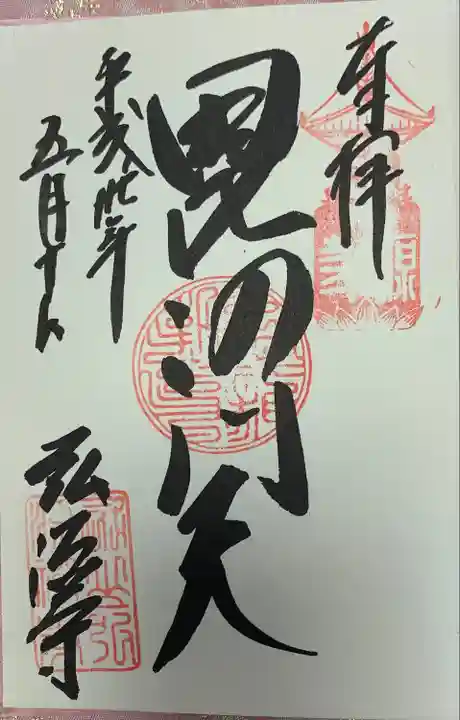 奉拝
毘沙門天
平成年
五月十八
弘法寺